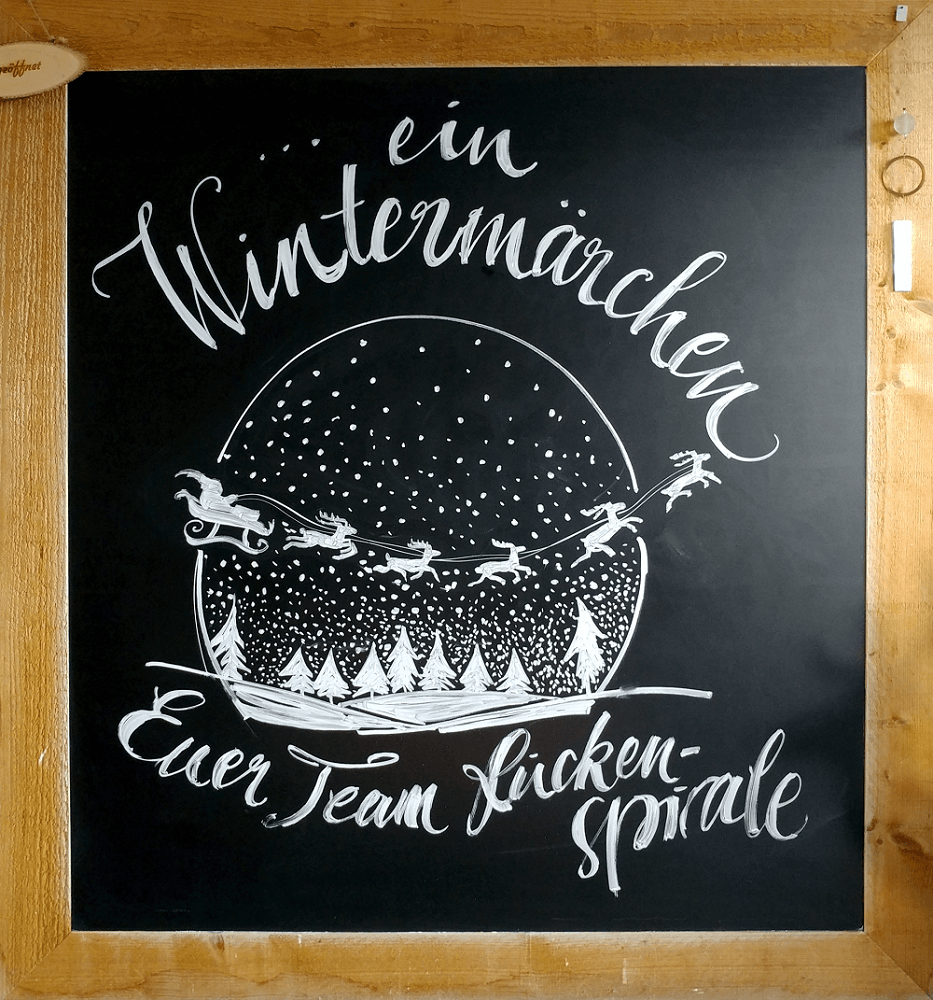 geöffnet
... ein
Wintermärchen
Euer Team Rücken-
spirale